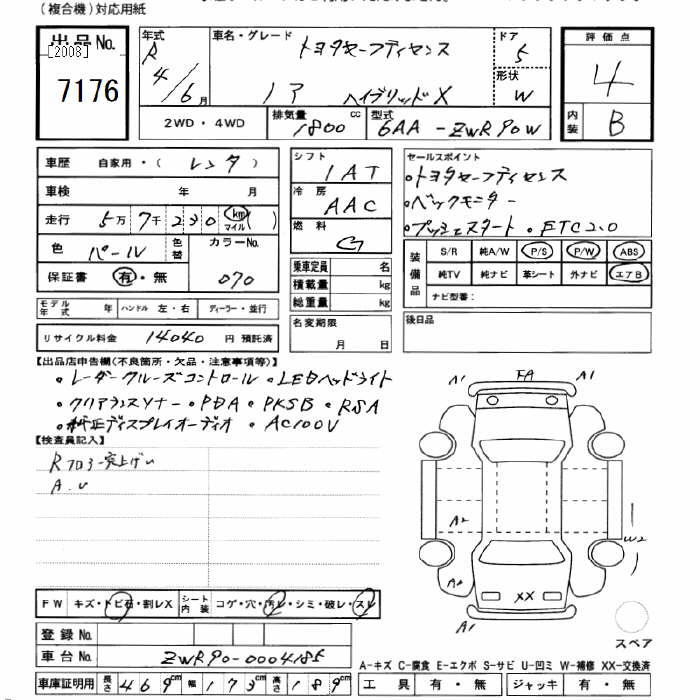 (複合機)対応用紙
出品No.
[2008]
7176
年式
R
4/6月
車名・グレード
トヨタセーフティセンス
ノア ハイブリッドX
ドア
5
形状
W
評価点
4
内装
B
2WD・4WD
排気量
1800 cc
型式
6AA-ZWR90W
車歴 自家用・(レンタ)
車検 年 月
走行 5万7千230 km マイル( )
色 パール 色替 カラーNo.
070
保証書 有・無
モデル年式 年 ハンドル 左・右 ディーラー・並行
リサイクル料金 14040 円 預託済
シフト
IAT
冷房
AAC
燃料
G
乗車定員 名
積載量 kg
総重量 kg
名変期限
月 日
セールスポイント
・トヨタセーフティセンス
・バックモニター
・プッシュスタート・ETC2.0
装備品
S/R 純A/W P/S P/W ABS
純TV 純ナビ 革シート 外ナビ エアB
ナビ型番:
後日品
【出品店申告欄(不良箇所・欠品・注意事項等)】
・レーダークルーズコントロール・LEDヘッドライト
・クリアランスソナー・PDA・PKSB・RSA
・純正ディスプレイオーディオ・AC100V
【検査員記入】
Rフロアー突上げ
A.U
A1 FA A1
A2
W2
A2
XX
A1
スペア
FW キズ・トビ石・割レX シート内装 コゲ・穴・汚レ・シミ・破レ・スレ
登録No.
車台No. ZWR90-0004185
車庫証明用 長さ 469cm 幅 173cm 高さ 189cm
A-キズ C-腐食 E-エクボ S-サビ U-凹ミ W-補修 XX-交換済
工具 有・無 ジャッキ 有・無